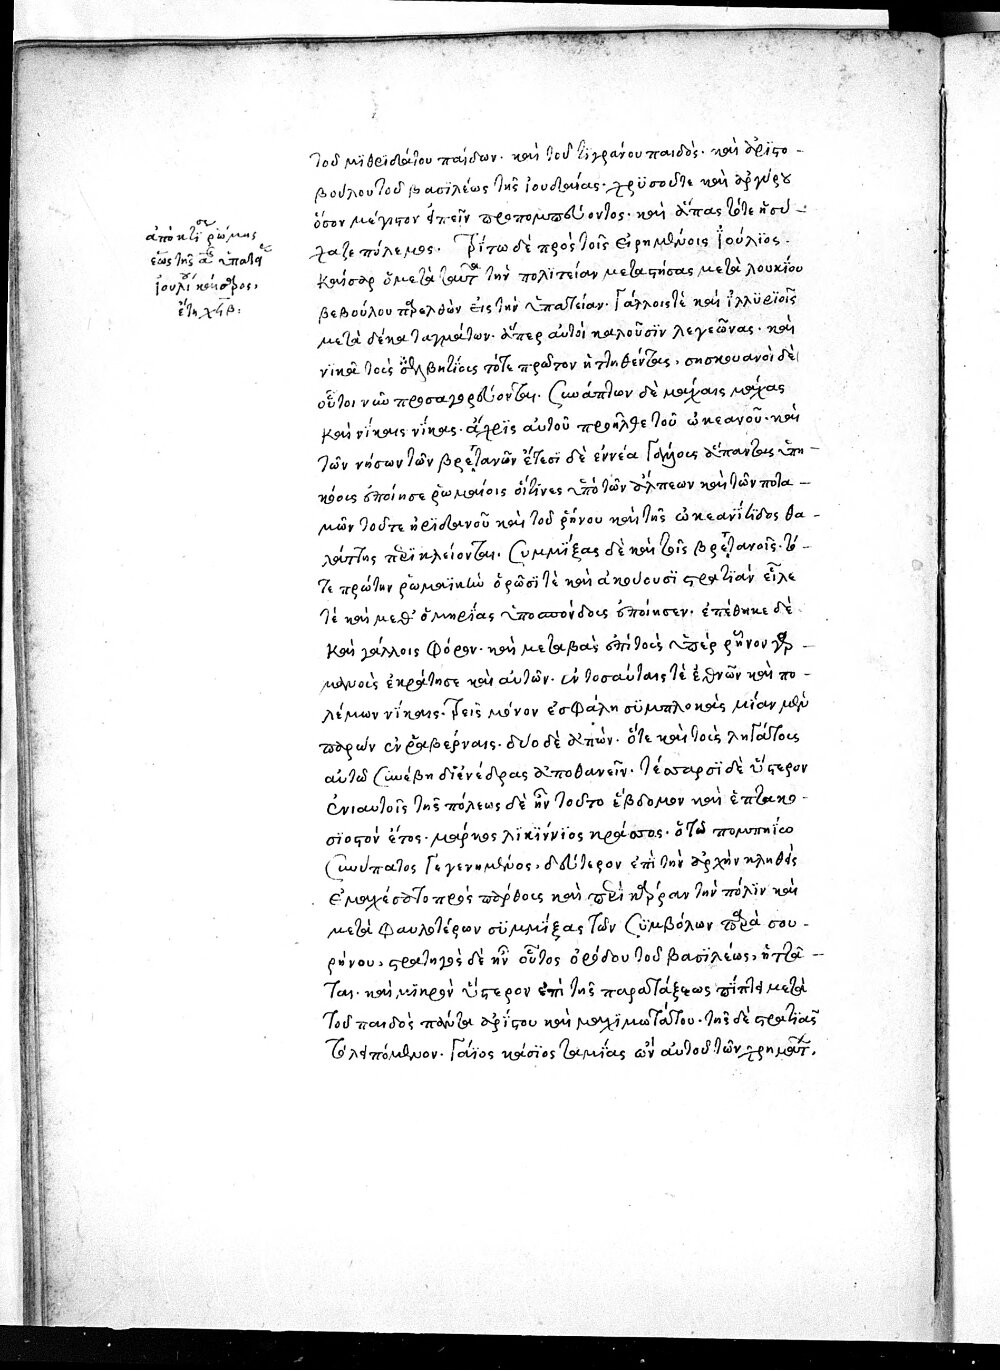 ἀπὸ κτίσε ῥώμης
ἕως τῆς α ὑπατείας
ἰουλί καίσαρος,
ἔτη χϟβ:
τοῦ μιθριδάτου παίδων· καὶ τοῦ τιγράνου παιδός· καὶ ἀριστο-
βούλου τοῦ βασιλέως τῆς ἰουδαίας· χρυσοῦ τε καὶ ἀργύρου
ὅσον μέγιστον εἰπεῖν προπομπεύοντος· καὶ ἅπας τότε ἡσύ-
χαζε πόλεμος. Τρίτω δὲ πρὸς τοῖς εἰρημένοις ἰούλιος
καῖσαρ ὁ μετὰ ταῦτα τὴν πολιτείαν μεταστήσας μετὰ λουκίου
βεβούλου παρελθὼν εἰς τὴν ὑπατείαν. Γάλλοις τὲ καὶ ἰλλυριοῖς
μετὰ δέκα ταγμάτων· ἅπερ αὐτοὶ καλοῦσϊν λεγεῶνας· καὶ
νικᾶ τοὺς ἐλβητίους τότε πρῶτον ἡττηθέντας, σησκουανοὶ δὲ
οὗτοι νῦν προσαγορεύονται. Συνάπτων δὲ μάχαις μάχας
καὶ νίκαις νίκας· ἄχρις αὐτοῦ προῆλθε τοῦ ὠκεανοῦ· καὶ
τῶν νήσων τῶν βρετανῶν ἔτεσι δὲ ἐννέα Γάλλους ἅπαντας ὑπη-
κόους ἐποίησε ῥωμαίοις οἵτινες ὑπὸ τῶν ἄλπεων καὶ τῶν ποτα-
μῶν τοῦ τε ἠριδανοῦ καὶ τοῦ ῥήνου καὶ τῆς ὠκεανίτιδος θα-
λάττης περικλείονται. Συμμίξας δὲ καὶ τοῖς βρετανοῖς· τό-
τε πρώτην ῥωμαϊκὴν ὁρῶσί τὲ καὶ ἀκούουσι στρατιὰν εἷλέ
τὲ καὶ μεθ' ὁμηρίας ὑποσπόνδους ἐποίησεν. ἐπέθηκε δὲ
καὶ γάλλοις φόρον· καὶ μεταβὰς ἐπὶ τοὺς ὑπὲρ ῥῆνον γερ-
μανοὺς ἐκράτησε καὶ αὐτῶν. ἐν τοσαύταις τὲ ἐθνῶν καὶ πο-
λέμων νίκαις. Τρεῖς μόνον ἐσφάλη συμπλοκὰς μίαν μὲν
παρὼν ἐν ῥαβέρναις· δύο δὲ ἀπών· ὅτε καὶ τοὺς ληγάτους
αὐτῶ συνέβη δι' ἐνέδρας ἀποθανεῖν. τέσσαρσι δὲ ὕστερον
ἐνιαυτοῖς τῆς πόλεως δὲ ἦν τοῦτο ἕβδομον καὶ ἑπτακο-
σιοστὸν ἔτος. μάρκος λικίννϊος κράσσος. ὅτω πομπηίω
συνύπατος γεγενημένος, δεύτερον ἐπὶ τὴν ἀρχὴν κληθεὶς
ἐμαχέσατο πρὸς πάρθους καὶ περὶ κάρραν τὴν πόλιν καὶ
μετὰ φαυλοτέρων συμμίξας τῶν συμβόλων παρὰ σου-
ρήνου, στρατηγὸς δὲ ἦν οὗτος ὀρόδου τοῦ βασιλέως, ἡττᾶ-
ται. καὶ μικρὸν ὕστερον ἐπὶ τῆς παρατάξεως πίπτει μετὰ
τοῦ παιδὸς πάνυ ἀρίστου καὶ μαχιμωτάτου. τῆς δὲ στρατιᾶς
τὸ λειπόμενον. Γάϊος κάσϊος ταμίας ὢν αὐτοῦ τῶν χρημάτων.